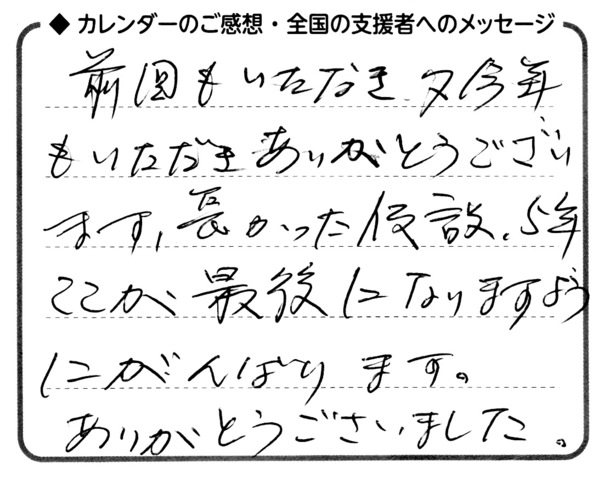 ◆ カレンダーのご感想・全国の支援者へのメッセージ
前回もいただき又今年
もいただきありがとうござい
ます,長かった仮設、5年
ここが最後になりますよう
にがんばります。
ありがとうございました。